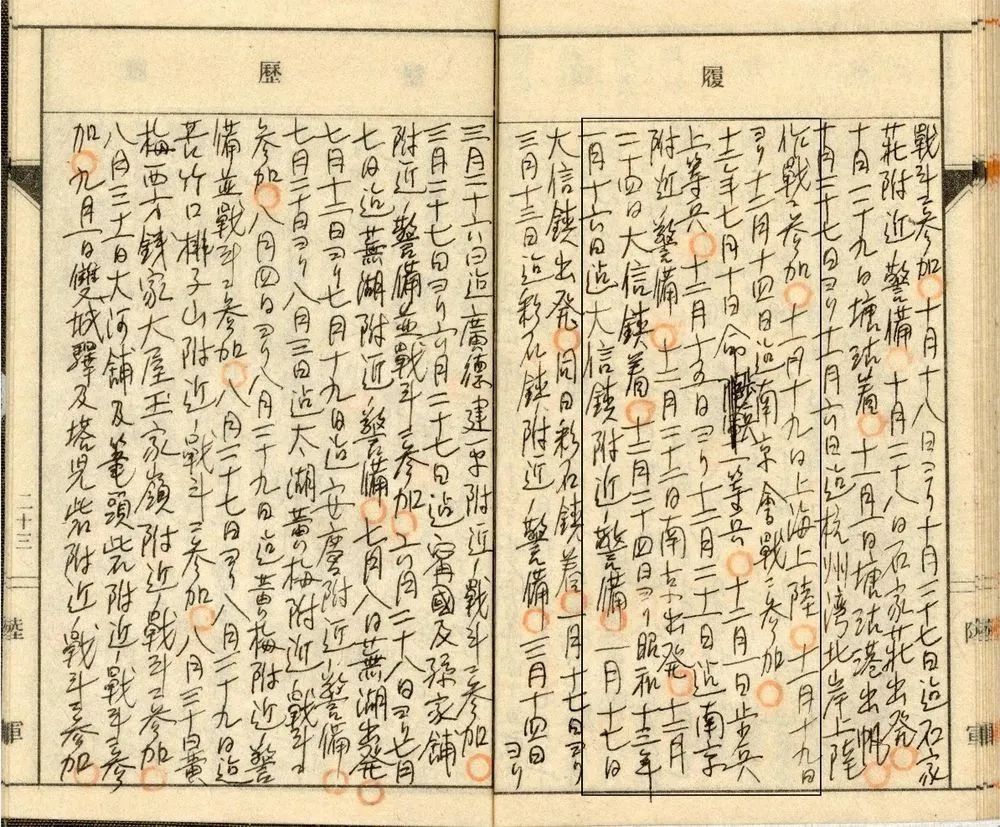 履
戦斗ニ参加 十月十八日ヨリ十月二十七日迠石家
莊附近警備 十月二十八日石家莊出発
十月二十九日塘沽着 十一月一日塘沽港出帆
十月二十七日ヨリ十一月六日迠杭州湾北岸上陸
作戦ニ参加 十一月十九日上海上陸 十一月十九日
ヨリ十二月十四日迠南京會戦ニ参加
十二年七月十日命 一等兵 十二月一日歩兵
上等兵 十二月十五日ヨリ十二月二十一日迠南京
附近ノ警備 十二月二十二日南京出発 十二月
二十四日大信鎮着 十二月二十四日ヨリ昭和十三年
一月十六日迠大信鎮附近ノ警備 一月十七日
大信鎮出発 同日彩石鎮着 一月十七日ヨリ
三月十三日迠彩石鎮附近ノ警備 三月十四日ヨリ
歴
三月二十六日迠廣德建平附近ノ戦斗ニ参加
三月二十七日ヨリ六月二十七日迠甯國及孫家舖
附近ノ警備並戦斗ニ参加 六月二十八日ヨリ七月
七日迠蕪湖附近ノ警備 七月八日蕪湖出発
七月十二日ヨリ七月十九日迠安慶附近ノ警備
七月二十日ヨリ八月三日迠太湖黄梅附近ノ戦斗ニ
参加 八月四日ヨリ八月二十九日迠黄梅附近ノ警
備並戦斗ニ参加 八月二十七日ヨリ八月二十九日迠
苦竹口排子山附近ノ戦斗ニ参加 八月三十日黄
梅西方錢家大屋王家嶺附近ノ戦斗ニ参加
八月三十一日大河舖及筆頭岩附近ノ戦斗ニ参
加 九月一日雙城驛及塔児岩附近ノ戦斗ニ参加
二十三
陸
軍
陸
軍